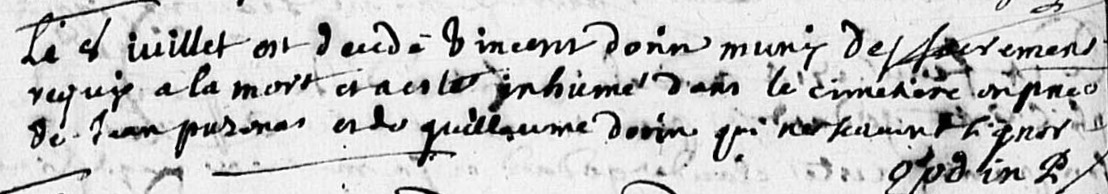 Le 8 juillet est decedé Vincent dorin muny des sacremens
requis a la mort et a esté inhumé dans le cimetiere en pnce
de Jean et de guillaume dorin qui ne scavent signer